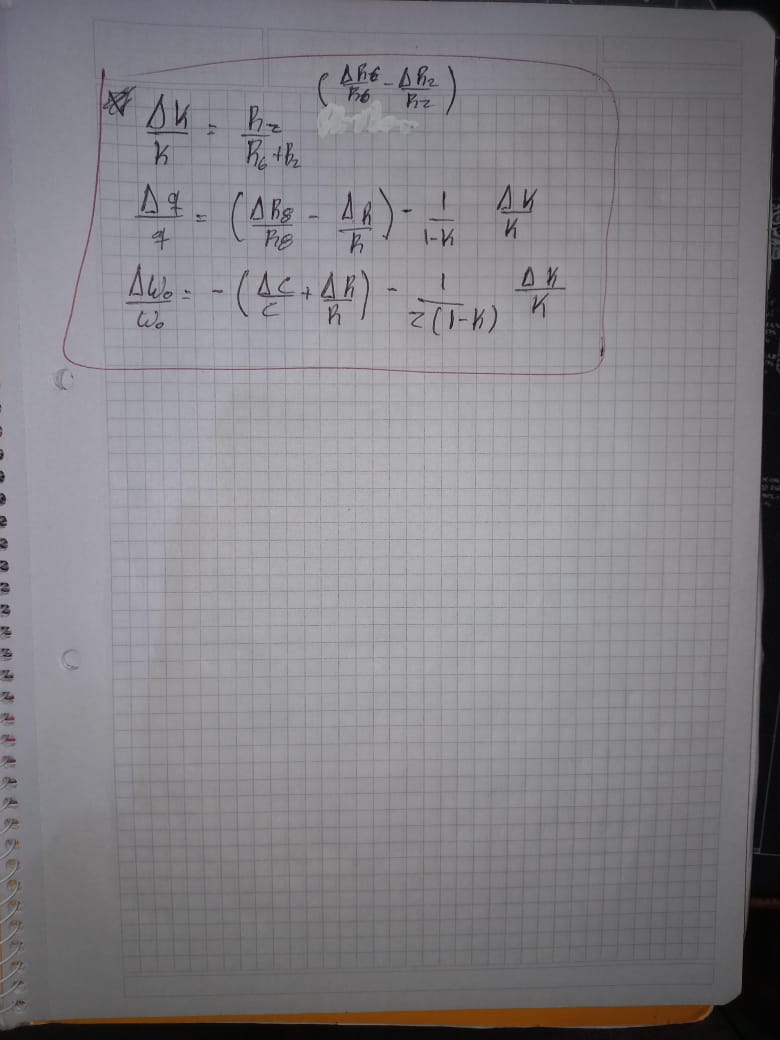 ΔK/K = R2/(R6+R2) (ΔR6/R6 - ΔR2/R2)
Δq/q = (ΔR8/R8 - ΔR/R) - 1/(1-K) ΔK/K
Δω₀/ω₀ = -(ΔC/C + ΔR/R) - 1/(2(1-K)) ΔK/K